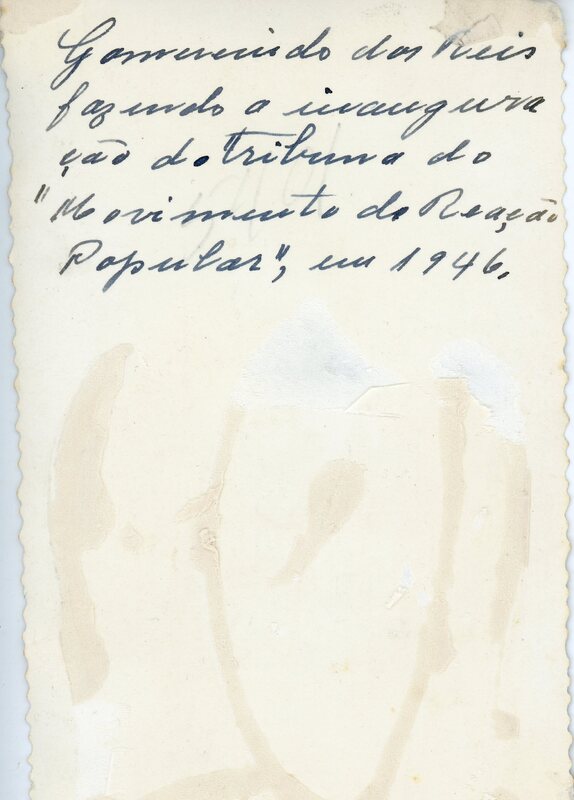 Gomercindo dos Reis
fazendo a inaugura
ção do Tribuna do
"Movimento de Reação
Popular", em 1946.